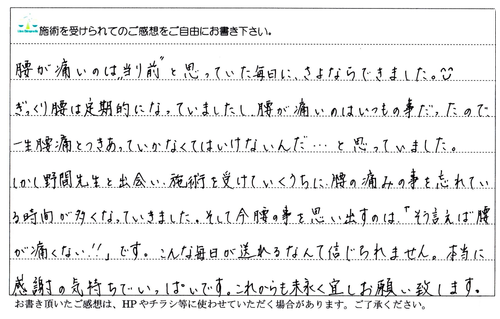 施術を受けられてのご感想をご自由にお書き下さい。
腰が痛いのは"当り前"と思っていた毎日に、さよならできました。
ぎっくり腰は定期的になっていましたし、腰が痛いのはいつもの事だったので
一生腰痛とつきあっていかなくてはいけないんだ…と思っていました。
しかし野間先生と出会い、施術を受けていくうちに、腰の痛みの事を忘れてい
る時間が多くなっていきました。そして今腰の事を思い出すのは「そう言えば腰
が痛くない!!」です。こんな毎日が送れるなんて信じられません。本当に
感謝の気持ちでいっぱいです。これからも末永く宜しお願い致します。
お書き頂いたご感想は、HPやチラシ等に使わせていただく場合があります。ご了承ください。